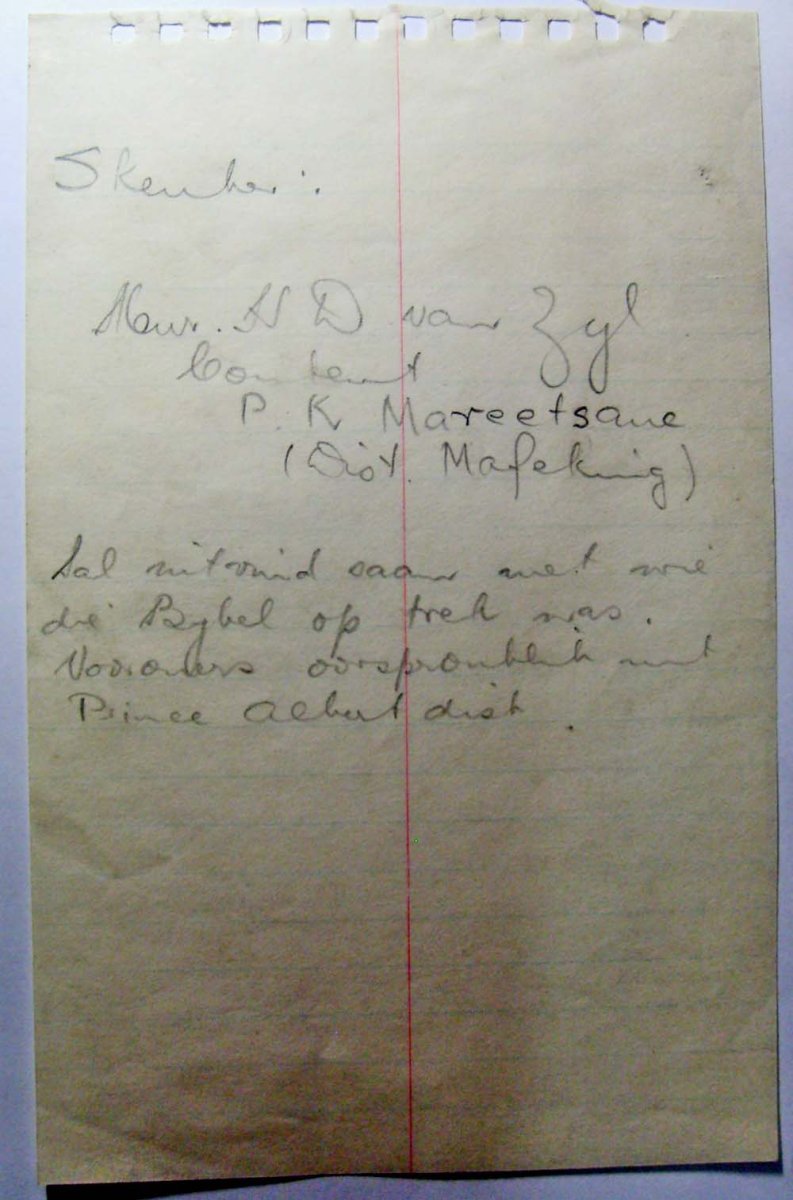 Skenker:
Mnr. H D van Zyl
Content
P. K Mareetsane
(Dist. Mafeking)
Sal uitvind saam met wie
die Bybel op trek was.
Voorouers oorspronklik uit
Prince Albert dist.